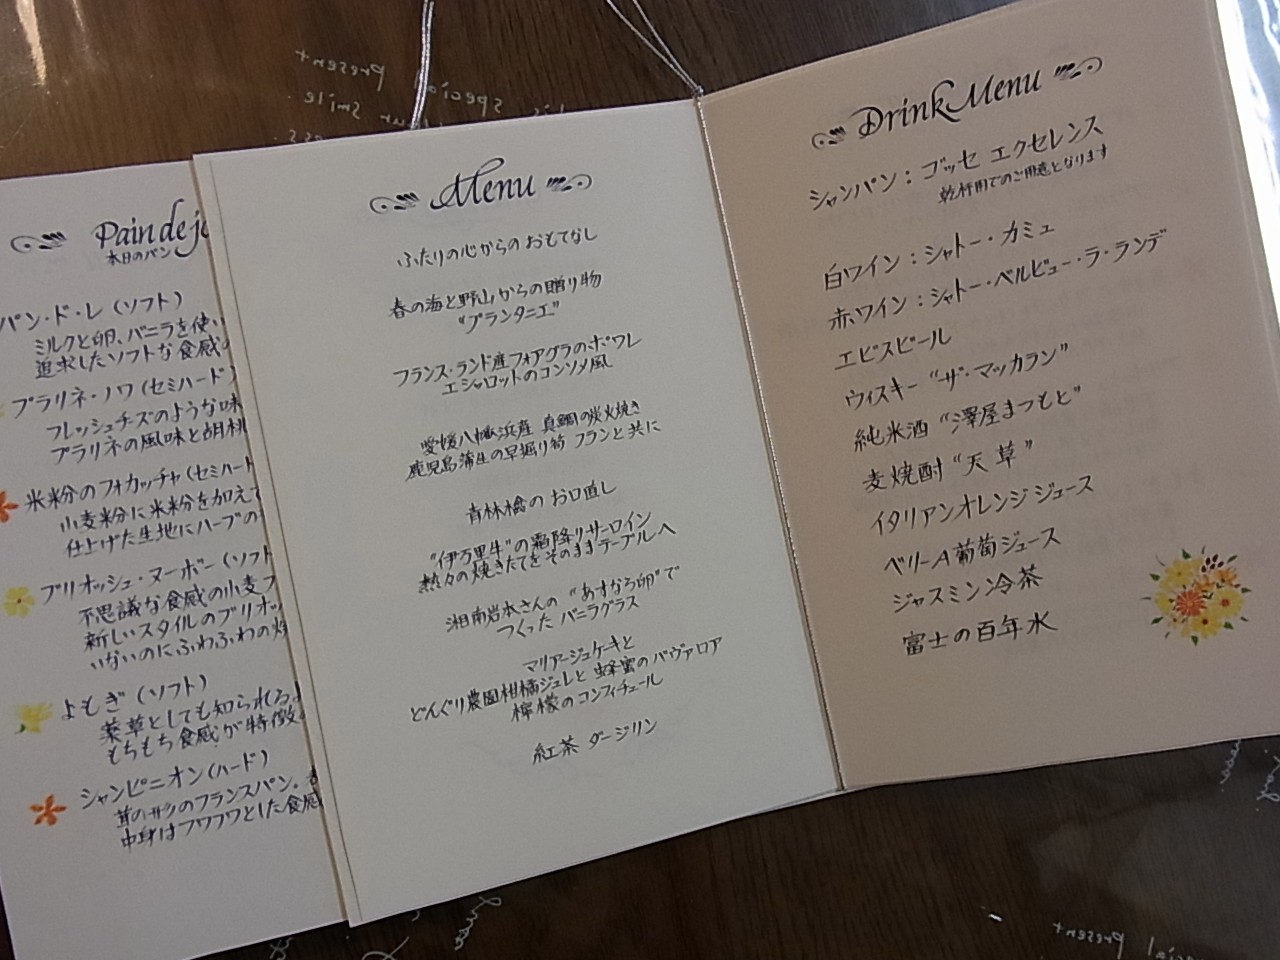 Pain de jo
本日のパン
パン・ド・レ（ソフト）
ミルクと卵、バニラを使い
追求したソフトな食感の
プラリネ・ノワ（セミハード）
フレッシュチーズのような味
プラリネの風味と胡桃
米粉のフォカッチャ（セミハード
小麦粉に米粉を加えて
仕上げた生地にハーブの
ブリオッシュ・ヌーボー（ソフト
不思議な食感の小麦フ
新しいスタイルのブリオッ
いないのにふわふわの
よもぎ（ソフト）
薬草としても知られるよ
もちもち食感が特徴
シャンピニオン（ハード）
茸のカサつのフランスパン。
中身はフワフワとした食感
Menu
ふたりの心からのおもてなし
春の海と野山からの贈り物
"プランタニエ"
フランス・ランド産フォアグラのポワレ
エシャロットのコンソメ風
愛媛八幡浜産 真鯛の炭火焼き
鹿児島蒲生の早掘り筍 フランと共に
青林檎の お口直し
"伊万里牛"の霜降りサーロイン
熱々の焼きたてをそのままテーブルへ
湘南岩本さんの "あすなろ卵"で
つくった バニラグラス
マリアージュケーキと
どんぐり農園柑橘ジュレと 蜂蜜のババロア
檸檬のコンフィチュール
紅茶 ダージリン
Drink Menu
シャンパン：ゴッセ エクセレンス
乾杯用でのご用意となります
白ワイン：シャトー・カミュ
赤ワイン：シャトー・ベルビュー・ラ・ランデ
エビスビール
ウィスキー "ザ・マッカラン"
純米酒 "澤屋まつもと"
麦焼酎 "天草"
イタリアンオレンジジュース
ベリーA葡萄ジュース
ジャスミン冷茶
富士の百年水
special present
smile
special present